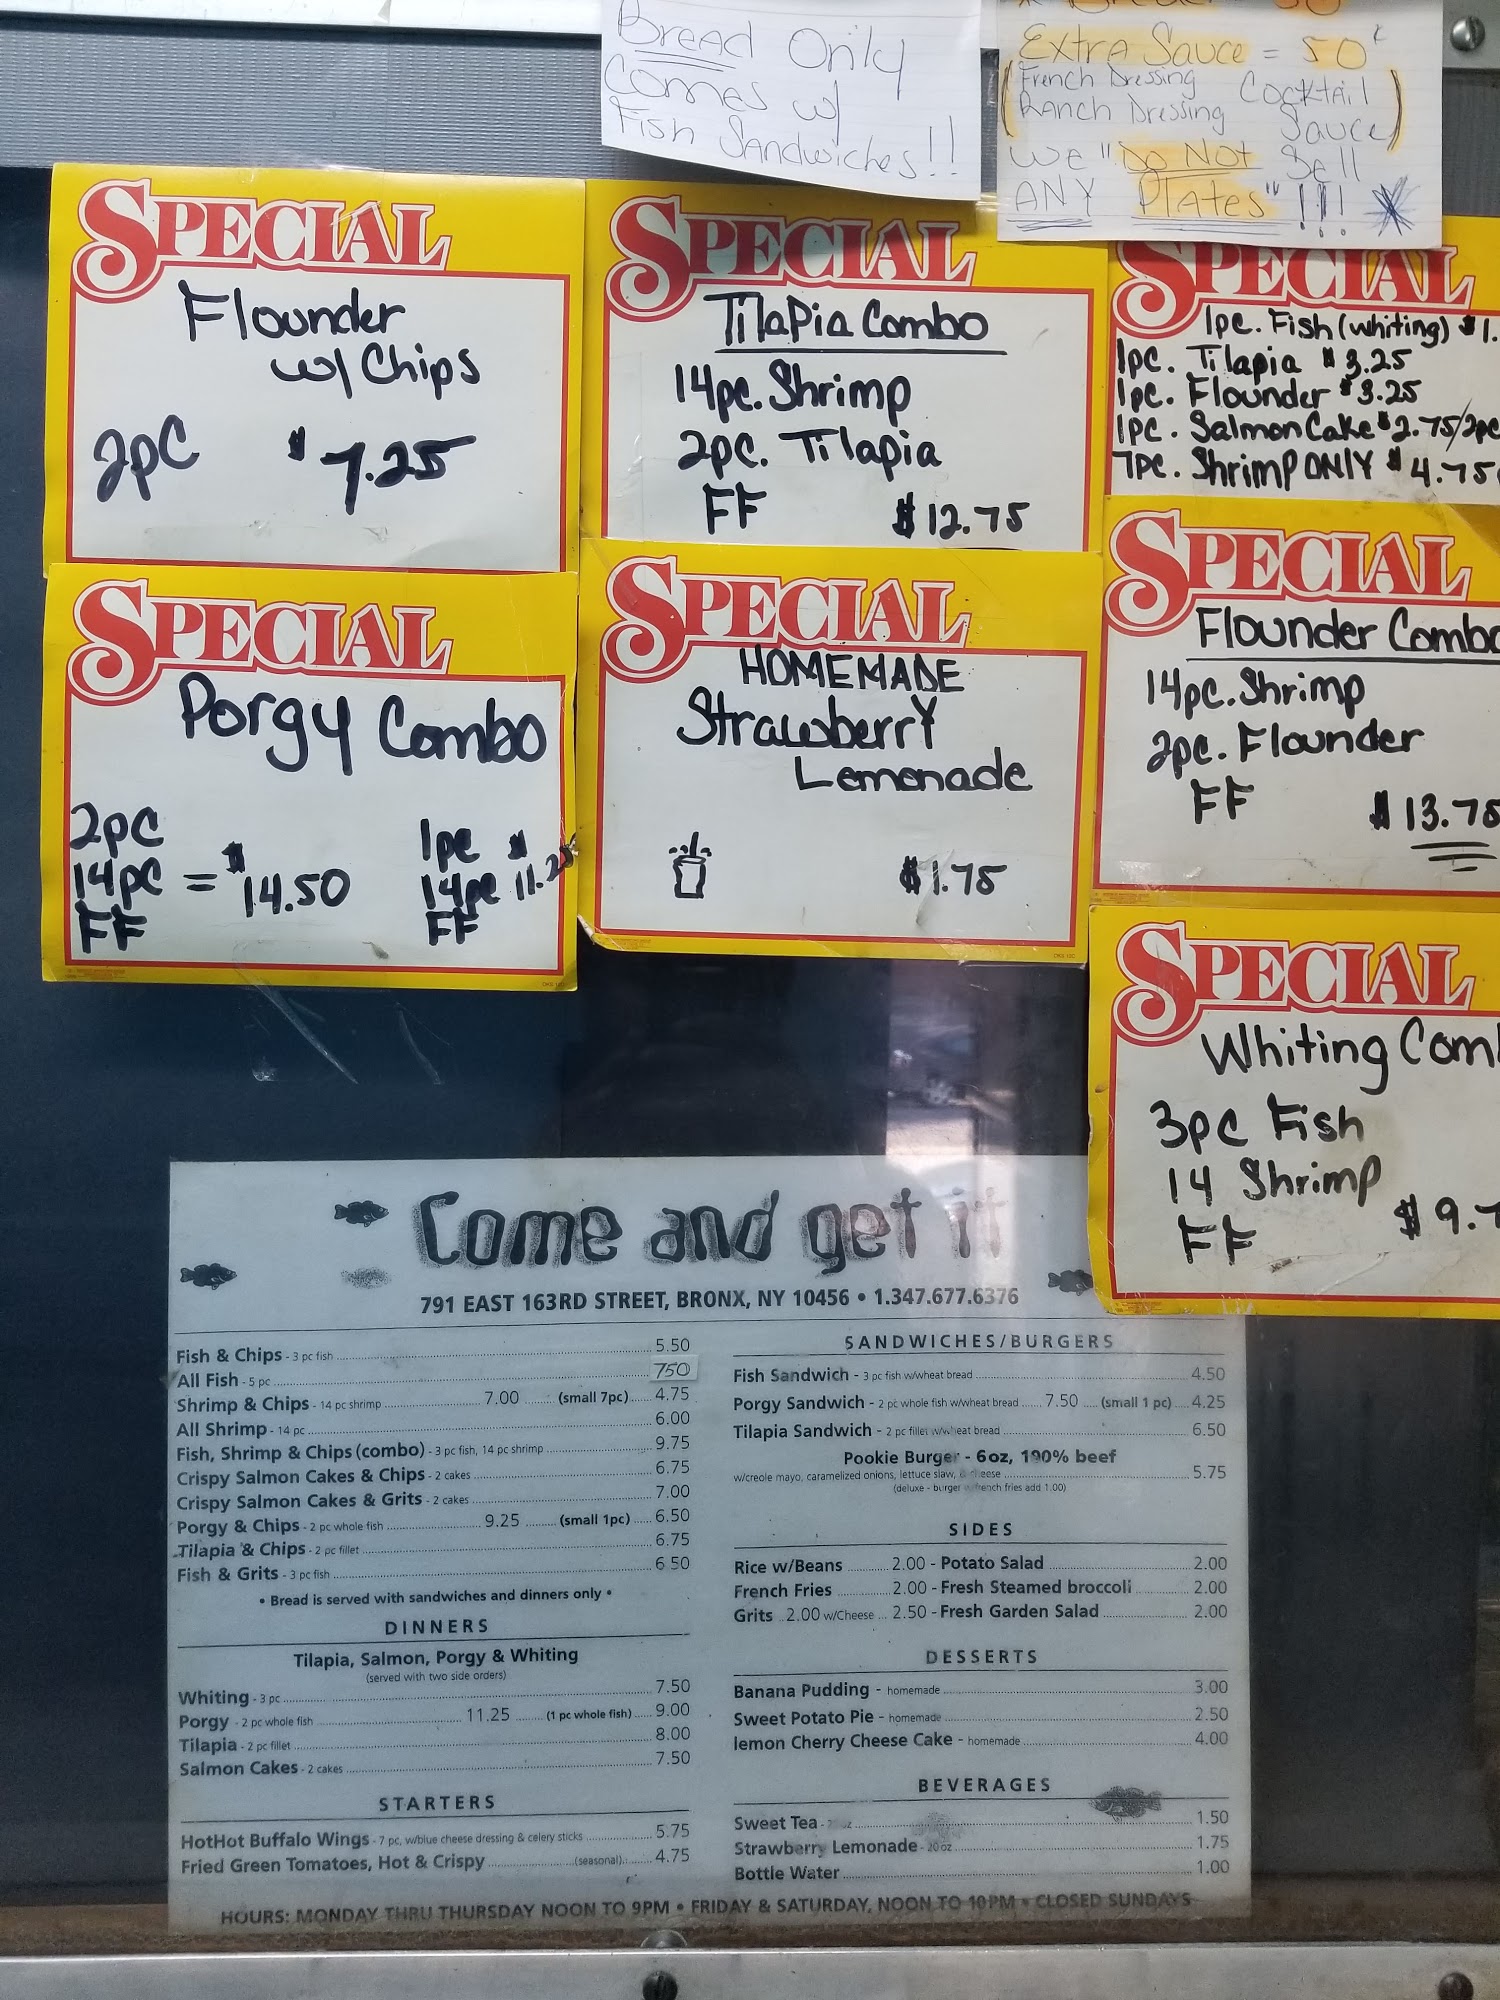 BREAD Only
COMES w/
Fish Sandwiches!!
EXTRA Sauce = 50¢
(French Dressing Cocktail
RANCH Dressing Sauce)
WE "DO NOT Sell
ANY Plates" !!!!
SPECIAL
Flounder
w/ Chips
2pc $7.25
SPECIAL
Tilapia Combo
14pc. Shrimp
2pc. Tilapia
FF $12.75
SPECIAL
1pc. Fish (whiting) $1.
1pc. Tilapia $3.25
1pc. Flounder $3.25
1pc. Salmon Cake $2.75/2pc
7pc. Shrimp ONLY $4.75
SPECIAL
Porgy Combo
2pc
14pc = $14.50
FF
1pc $
14pc 11.25
FF
SPECIAL
HOMEMADE
Strawberry
Lemonade
$1.75
SPECIAL
Flounder Combo
14pc. Shrimp
2pc. Flounder
FF $13.75
SPECIAL
Whiting Com
3pc Fish
14 Shrimp
FF $9.7
Come and get it
791 EAST 163RD STREET, BRONX, NY 10456 • 1.347.677.6376
Fish & Chips - 3 pc fish 5.50
All Fish - 5 pc 750
Shrimp & Chips - 14 pc shrimp 7.00 (small 7pc) 4.75
All Shrimp - 14 pc 6.00
Fish, Shrimp & Chips (combo) - 3 pc fish, 14 pc shrimp 9.75
Crispy Salmon Cakes & Chips - 2 cakes 6.75
Crispy Salmon Cakes & Grits - 2 cakes 7.00
Porgy & Chips - 2 pc whole fish 9.25 (small 1pc) 6.50
Tilapia & Chips - 2 pc fillet 6.75
Fish & Grits - 3 pc fish 6.50
• Bread is served with sandwiches and dinners only •
DINNERS
Tilapia, Salmon, Porgy & Whiting
(served with two side orders)
Whiting - 3 pc 7.50
Porgy - 2 pc whole fish 11.25 (1 pc whole fish) 9.00
Tilapia - 2 pc fillet 8.00
Salmon Cakes - 2 cakes 7.50
STARTERS
HotHot Buffalo Wings - 7 pc, w/blue cheese dressing & celery sticks 5.75
Fried Green Tomatoes, Hot & Crispy (seasonal) 4.75
SANDWICHES/BURGERS
Fish Sandwich - 3 pc fish w/wheat bread 4.50
Porgy Sandwich - 2 pc whole fish w/wheat bread 7.50 (small 1 pc) 4.25
Tilapia Sandwich - 2 pc fillet w/wheat bread 6.50
Pookie Burger - 6oz, 100% beef
w/creole mayo, caramelized onions, lettuce slaw, & cheese 5.75
(deluxe - burger w/french fries add 1.00)
SIDES
Rice w/Beans 2.00 - Potato Salad 2.00
French Fries 2.00 - Fresh Steamed broccoli 2.00
Grits 2.00 w/Cheese 2.50 - Fresh Garden Salad 2.00
DESSERTS
Banana Pudding - homemade 3.00
Sweet Potato Pie - homemade 2.50
lemon Cherry Cheese Cake - homemade 4.00
BEVERAGES
Sweet Tea - oz 1.50
Strawberry Lemonade - 20 oz 1.75
Bottle Water 1.00
HOURS: MONDAY THRU THURSDAY NOON TO 9PM • FRIDAY & SATURDAY, NOON TO 10PM • CLOSED SUNDAYS